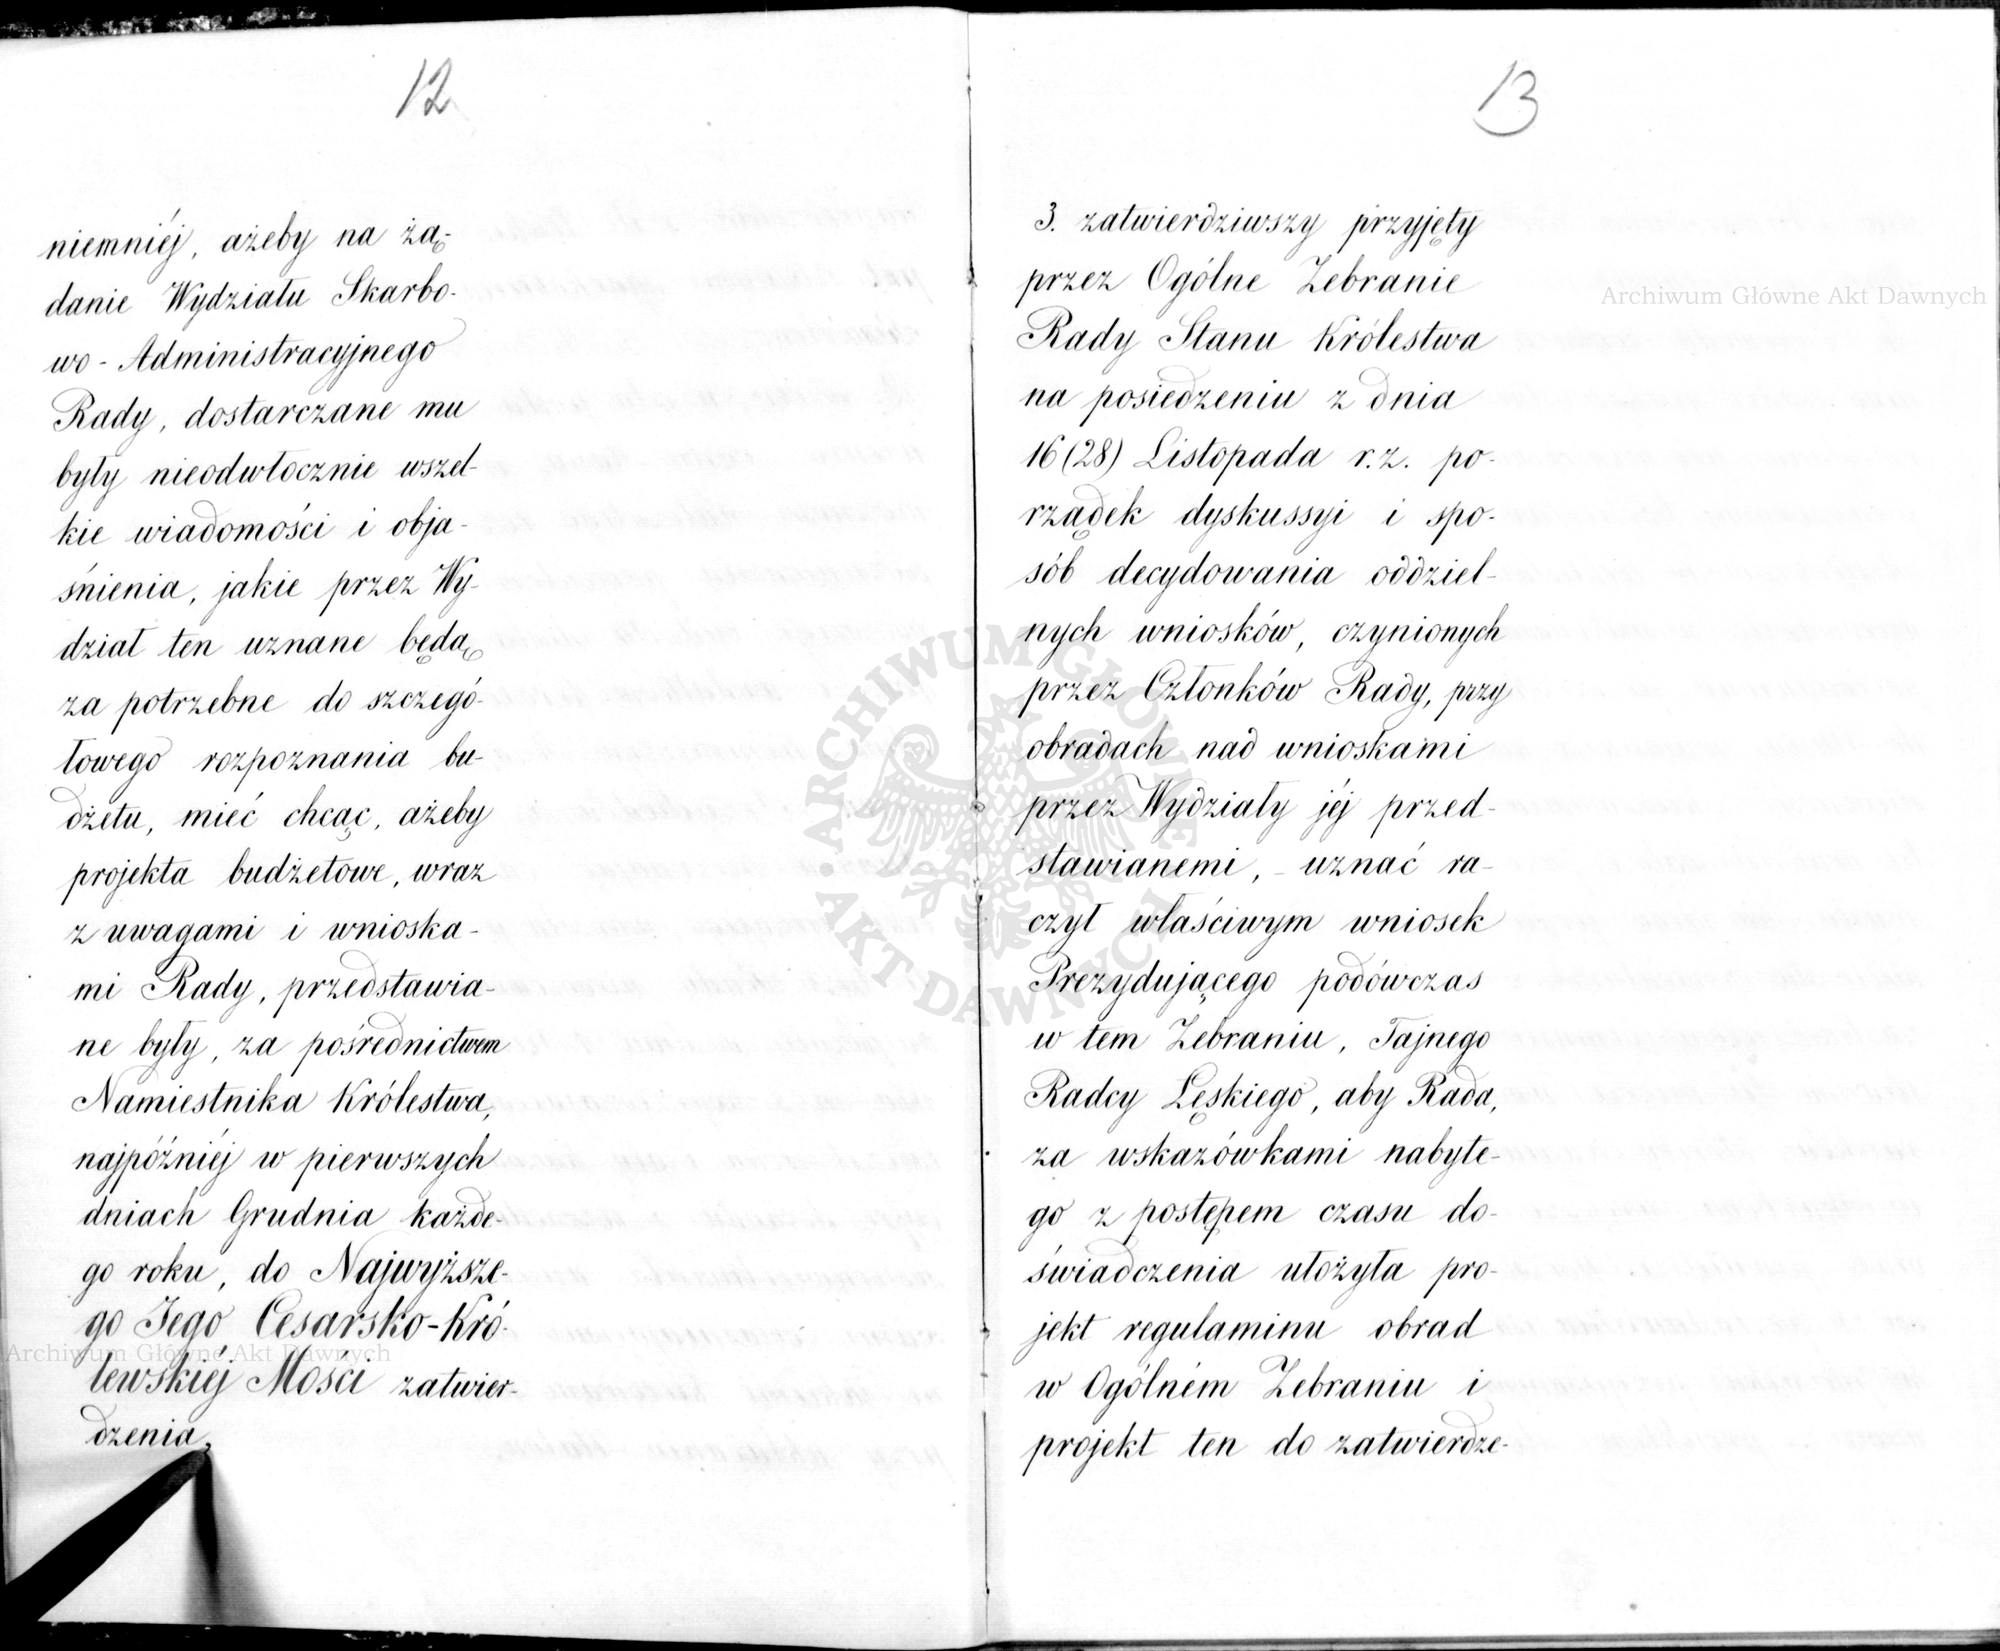 12
niemniéj, ażeby na żą-
danie Wydziału Skarbo-
wo-Administracyjnego
Rady, dostarczane mu
były nieodwłocznie wszel-
kie wiadomości i obja-
śnienia, jakie przez Wy-
dział ten uznane będą
za potrzebne do szczegó-
łowego rozpoznania bu-
dżetu, mieć chcąc, ażeby
projekta budżetowe, wraz
z uwagami i wnioska-
mi Rady, przedstawia-
ne były, za pośrednictwem
Namiestnika Królestwa,
najpóźniéj w pierwszych
dniach Grudnia każde-
go roku, do Najwyższe-
go Jego Cesarsko-Kró-
lewskiéj Mości zatwier-
dzenia,
13
3. zatwierdziwszy przyjęty
przez Ogólne Zebranie
Rady Stanu Królestwa
na posiedzeniu z dnia
16 (28) Listopada r.z. po-
rządek dyskussyi i spo-
sób decydowania oddziel-
nych wniosków, czynionych
przez Członków Rady, przy
obradach nad wnioskami
przez Wydziały jéj przed-
stawianemi, - uznać ra-
czył właściwym wniosek
Prezydującego podówczas
w tem Zebraniu, Tajnego
Radcy Łęskiego, aby Rada,
za wskazówkami nabyte-
go z postępem czasu do-
świadczenia ułożyła pro-
jekt regulaminu obrad
w Ogólném Zebraniu i
projekt ten do zatwierdze-
Archiwum Główne Akt Dawnych
ARCHIWUM GŁÓWNE
AKT DAWNYCH
Archiwum Główne Akt Dawnych